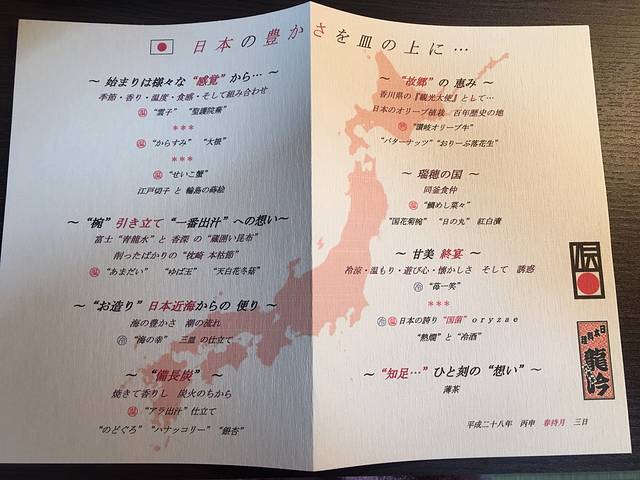 日本の豊かさを皿の上に…
～ 始まりは様々な “感覚” から… ～
季節・香り・温度・食感・そして組み合わせ
温 “雲子” “聖護院蕪”
***
温 “からすみ” “大根”
***
温 “せいこ蟹”
江戸切子 と 輪島の蒔絵
～ “椀” 引き立て “一番出汁” への想い～
富士 “青龍水” と 香深 の “蔵囲い昆布”
削ったばかりの “枕崎 本枯節”
温 “あまだい” “ゆば王” “天白花冬菇”
～ “お造り” 日本近海からの 便り ～
海の豊かさ 潮の流れ
冷 “海の幸” 三皿 の仕立て
～ “備長炭” ～
焼きて香りし 炭火のちから
温 “アラ出汁” 仕立て
“のどぐろ” “ハナッコリー” “銀杏”
～ “故郷” の 恵み ～
香川県の『観光大使』として…
日本のオリーブ植栽 百年歴史の地
“讃岐オリーブ牛”
“バターナッツ” “おりーぶ落花生”
～ 瑞穂の国 ～
同釜食仲
温 “鯛めし菜々”
“国花菊椀” “日の丸” 紅白漬
～ 甘美 終宴 ～
冷涼・温もり・遊び心・懐かしさ そして 誘惑
冷 “苺一笑”
***
冷 温 日本の誇り “国菌” oryzae
“熱燗” と “冷酒”
～ “知足…” ひと刻の “想い” ～
薄茶
平成二十八年 丙申 春待月 三日
日本料理
龍吟